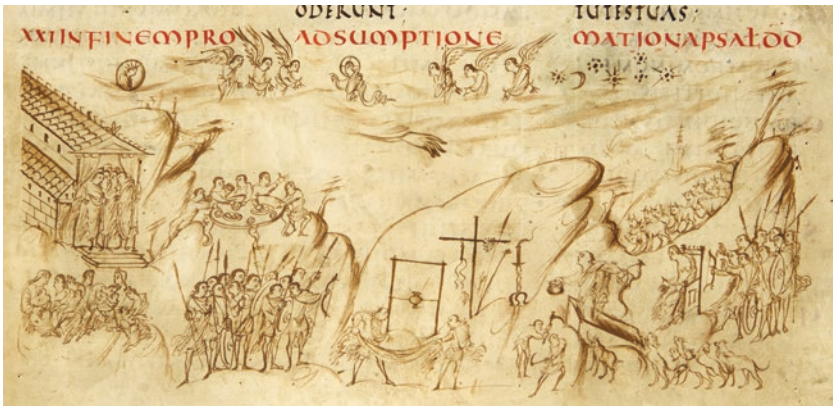 ODERUNT: TUTESTUAS:
XXIINFINEMPRO ADSUMPTIONE MATIONAPSAŁDD